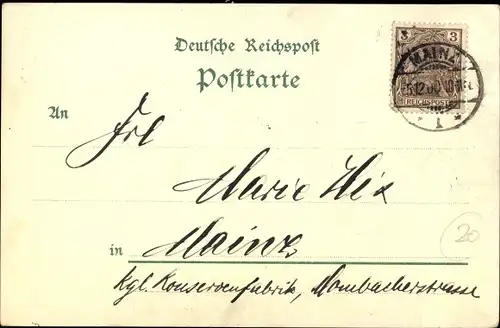 Deutsche Reichspost
Postkarte
3 3
REICHSPOST
MAINZ
5.12.00
1
An
Frl
Marie
in Mainz
Kgl. Konservenfabrik, Mombacherstrasse
20